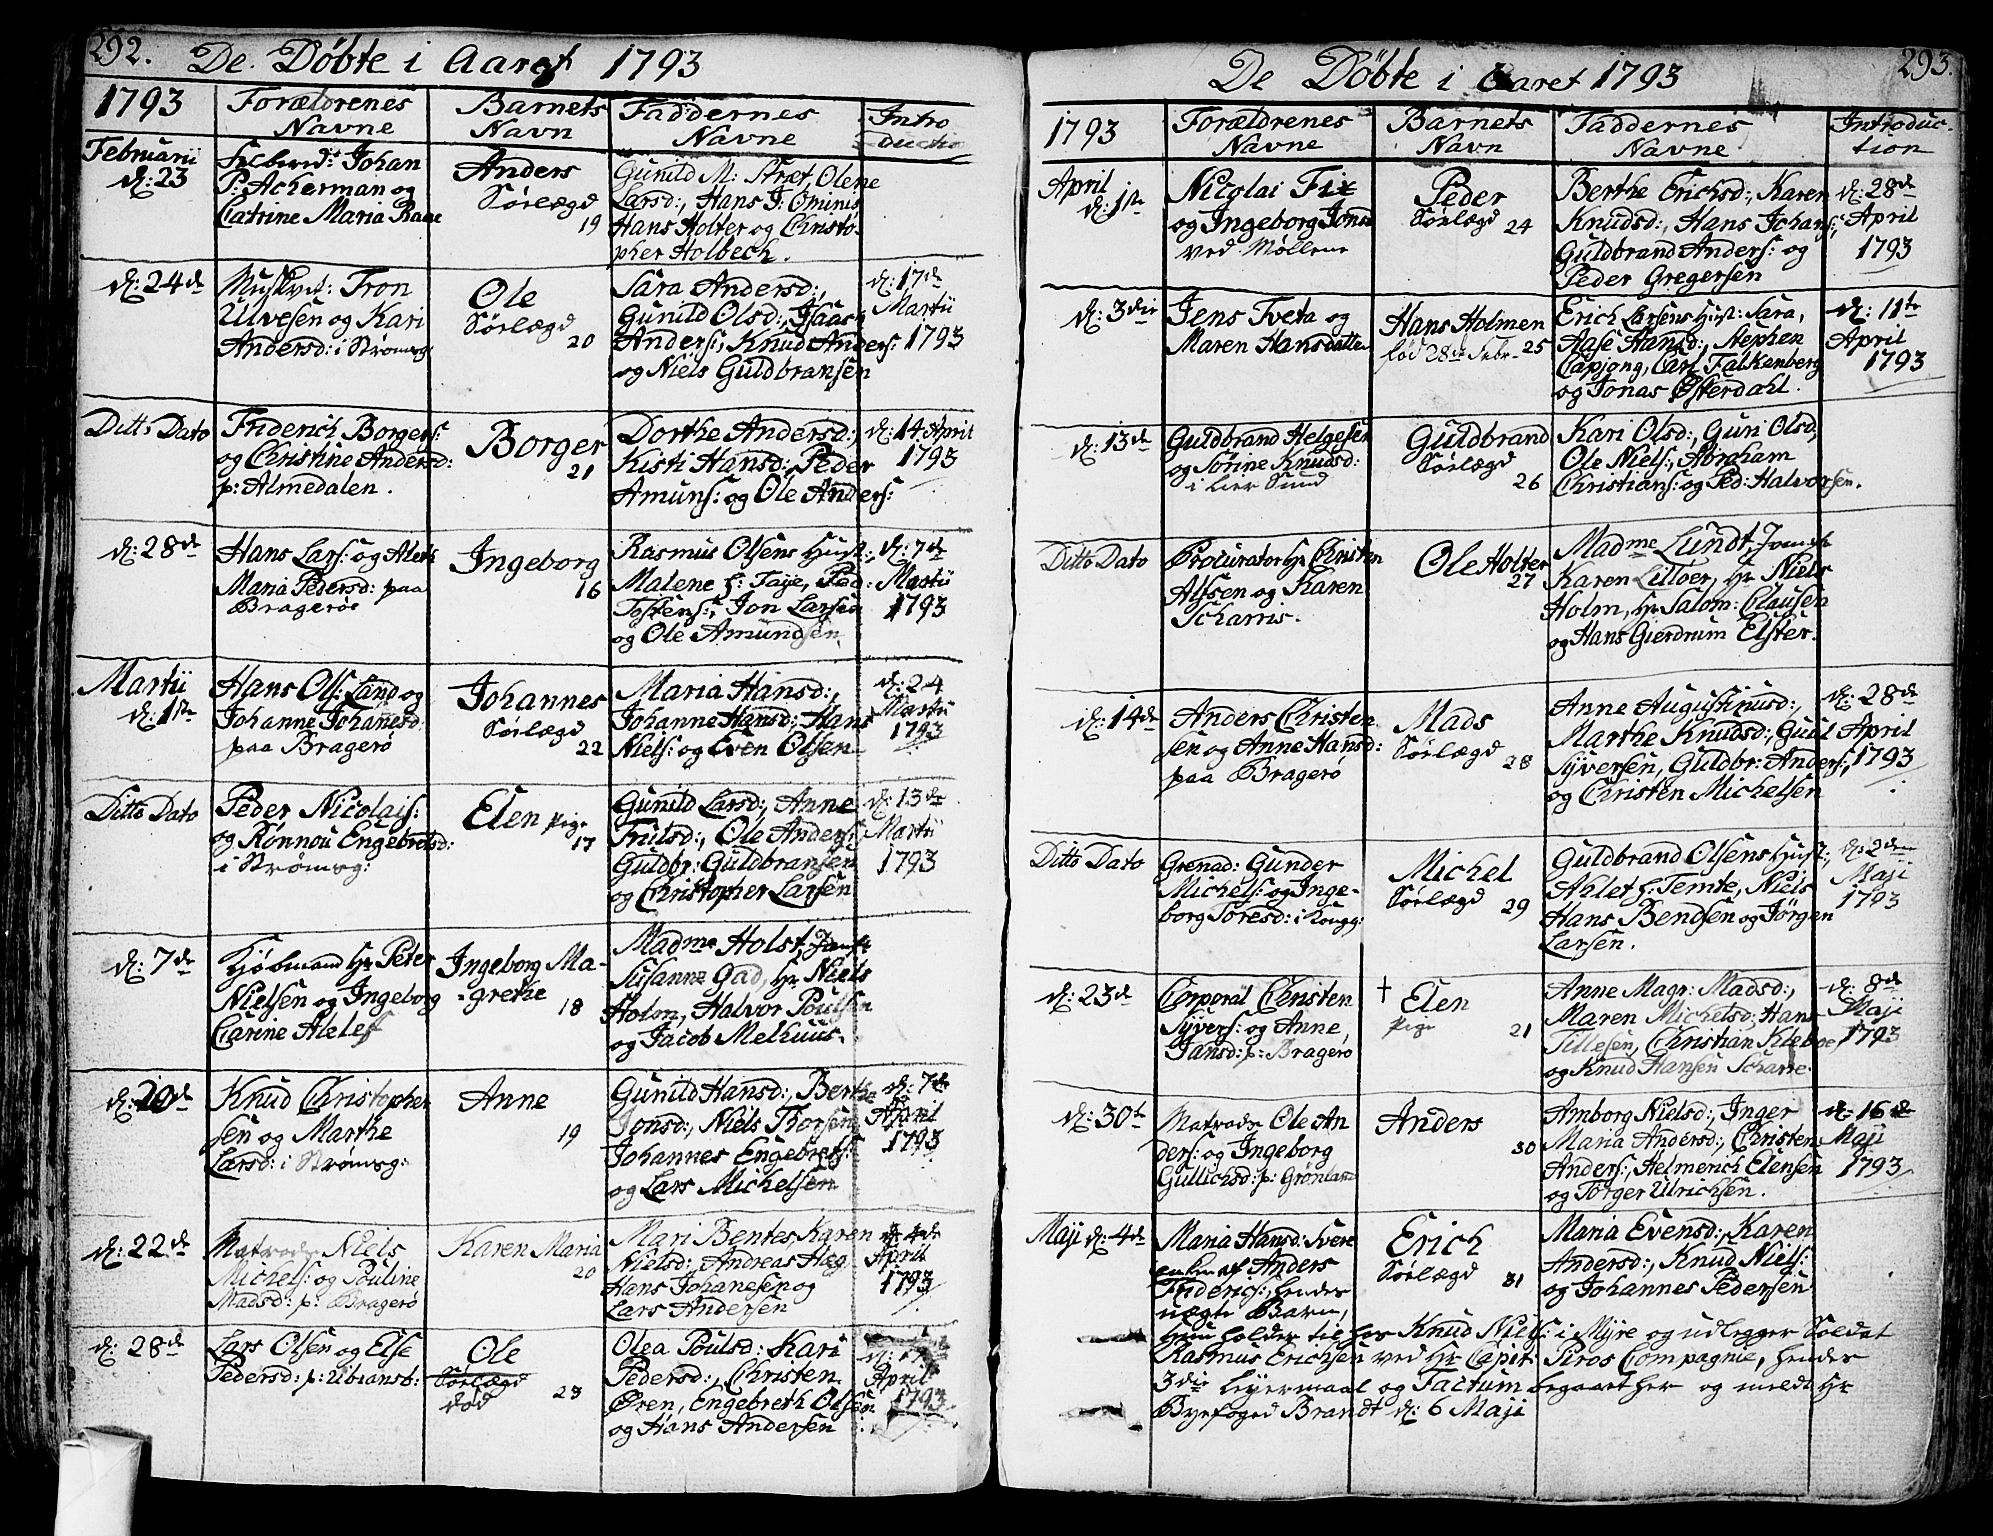 292. De Døbte i Aaret 1793
1793 Forældrenes Navne Barnets Navn Faddernes Navne Intro
ductio
Februarii d: 23
Johan
P: Ackerman og
Catrine Maria Raae
Anders
Sørlægd
19
Gunild M: Stræt, Olene
Larsd:, Hans J: Ominus
Hans Holter og Christo-
pher Holbech.
d: 24de
Muskvet: Tron
Ulvesen og Kari
Andersd: i Strømsg:
Ole
Sørlægd
20
Sara Andersd:,
Gunild Olsd:, Isaac
Anders:, Knud Anders:
og Niels Guldbransen
d: 17de
Martii
1793
Ditto Dato
Friderich Borgers:
og Christine Andersd:
p: Almedalen.
Borger
21
Dorthe Andersd:,
Kisti Hansd:, Peder
Amuns: og Ole Anders:
d: 14 April
1793
d: 28de
Hans Lars: og Alete
Maria Pedersd: paa
Bragerøe
Ingeborg
16
Rasmus Olsens Hust:,
Malene S: Taje, Ped:
Tostens:, Jon Larsen
og Ole Amundsen
d: 7de
Martii
1793
Martii
d: 1ste
Hans Ols: Land og
Johanne Johanesd:
paa Bragerø
Johannes
Sørlægd
22
Maria Hansd:,
Johanne Hansd:, Hans
Niels: og Even Olsen
d: 24
Martii
1793
Ditto Dato
Peder Nicolais:
og Rønnou Engebretsd:
i Strømsg:
Elen Pige
17
Gunild Larsd:, Anne
Trulsd:, Ole Anders:
Guldbr: Guldbransen
og Christopher Larsen
d: 13de
Martii
1793
d: 7de
Kjøbmand Hr Peter
Nielsen og Ingeborg
Carine Alelef
Ingeborg Ma-
grethe
18
Madme Holst, Jomfr
Susanne Gad, Hr Niels
Holm, Halvor Poulsen
og Jacob Melhuus.
d: 20de
Knud Christopher
sen og Marthe
Larsd: i Strømsg:
Anne
19
Gunild Hansd:, Berthe
Jonsd:, Niels Thorsen
Johannes Engebrets:
og Lars Michelsen
d: 7de
April
1793
d: 22de
Matros Niels
Michels: og Pouline
Madsd: p: Bragerø
Karen Maria
20
Mari Bentes Karen
Nielsd:, Andreas Hæg
Hans Johanesen og
Lars Andersen
d: 4de
April
1793
d: 28de
Lars Olsen og Else
Pedersd: p: Ubiansb:
Ole
Sørlægd
død
23
Olea Poulsd: Kari
Pedersd:, Christen
Øren, Engebreth Olsen
og Hans Andersen
April
1793
De Døbte i Aaret 1793 293.
1793 Forældrenes Navne Barnets Navn Faddernes Navne Introduc-
tion
April
d: 1ste
Nicolai Fix
og Ingeborg Jonsd
ved Møllene
Peder
Sørlægd 24
Berthe Erichsd:, Karen
Knudsd:, Hans Johans:,
Guldbrand Anders: og
Peder Gregersen
d: 28de
April
1793
d: 3die
Jens Tveta og
Maren Hansdatter
Hans Holmen
fød 28de Febr. 25
Erich Larsens Hust: Sara,
Aase Hansd:, Stephen
Capjong, Carl Falkenberg
og Jonas Østerdahl.
d: 11te
April
1793
d: 13de
Guldbrand Helgesen
og Sørine Knudsd:
i Lier Sund
Guldbrand
Sørlægd
26
Kari Olsd:, Guri Olsd:,
Ole Niels:, Abraham
Christians: og Ped: Halvorsen.
Ditto Dato
Procurator Hr Christen
Alfsen og Karen
Scharris.
Ole Holter
27
Madme Lundt, Jomfr
Karen Litloer, Hr Niels
Holm, Hr Salom: Clausen
og Hans Gierdrum Elster.
d: 14de
Anders Christen
sen og Anne Hansd:
paa Bragerø
Mads
Sørlægd 28
Anne Augustinusd:,
Marthe Knudsd:, Gul
Syversen, Guldbr: Anders:,
og Christen Michelsen
d: 28de
April
1793
Ditto Dato
Grenad: Gunder
Michels: og Inge-
borg Toresd: i Kongg:
Michel
Sørlægd 29
Guldbrand Olsens Hust:,
Ahlet S: Temte, Niels
Hans Bendsen og Jørgen
Larsen.
d: 2den
Maji
1793
d: 23de
Corporal Christen
Syvers: og Anne
Jansd: p: Bragerø
† Elen
Pige 21
Anne Magr: Madsd:,
Maren Michelsd:, Hans
Tillesen, Christian Kleboe,
og Knud Hansen Scharre
d: 8de
Maji
1793
d: 30te
Matros Ole An
ders: og Ingeborg
Gullichsd: p: Grønland
Anders
30
Amborg Nielsd:, Inger
Maria Andersd:, Christen
Anders:, Helmerich Elensen
og Torger Ulrichsen.
d: 16de
Maji
1793
Maji d: 4de
Maria Hansd: Svere
enke af Anders
Friderics:, hendes
uægte Barn,
Erich
Sørlægd 31
Maria Evensd:, Karen
Andersd:, Knud Niels:
og Johannes Pedersen
hun holder til hos Knud Niels: i Myre og udlegger Soldat
Rasmus Erichsen ved Hr Capit: Siros Compagnie, hendes
3die Leyermaal og Factum begaaet her og meldt Hr
Byefoged Brandt d: 6 Maji